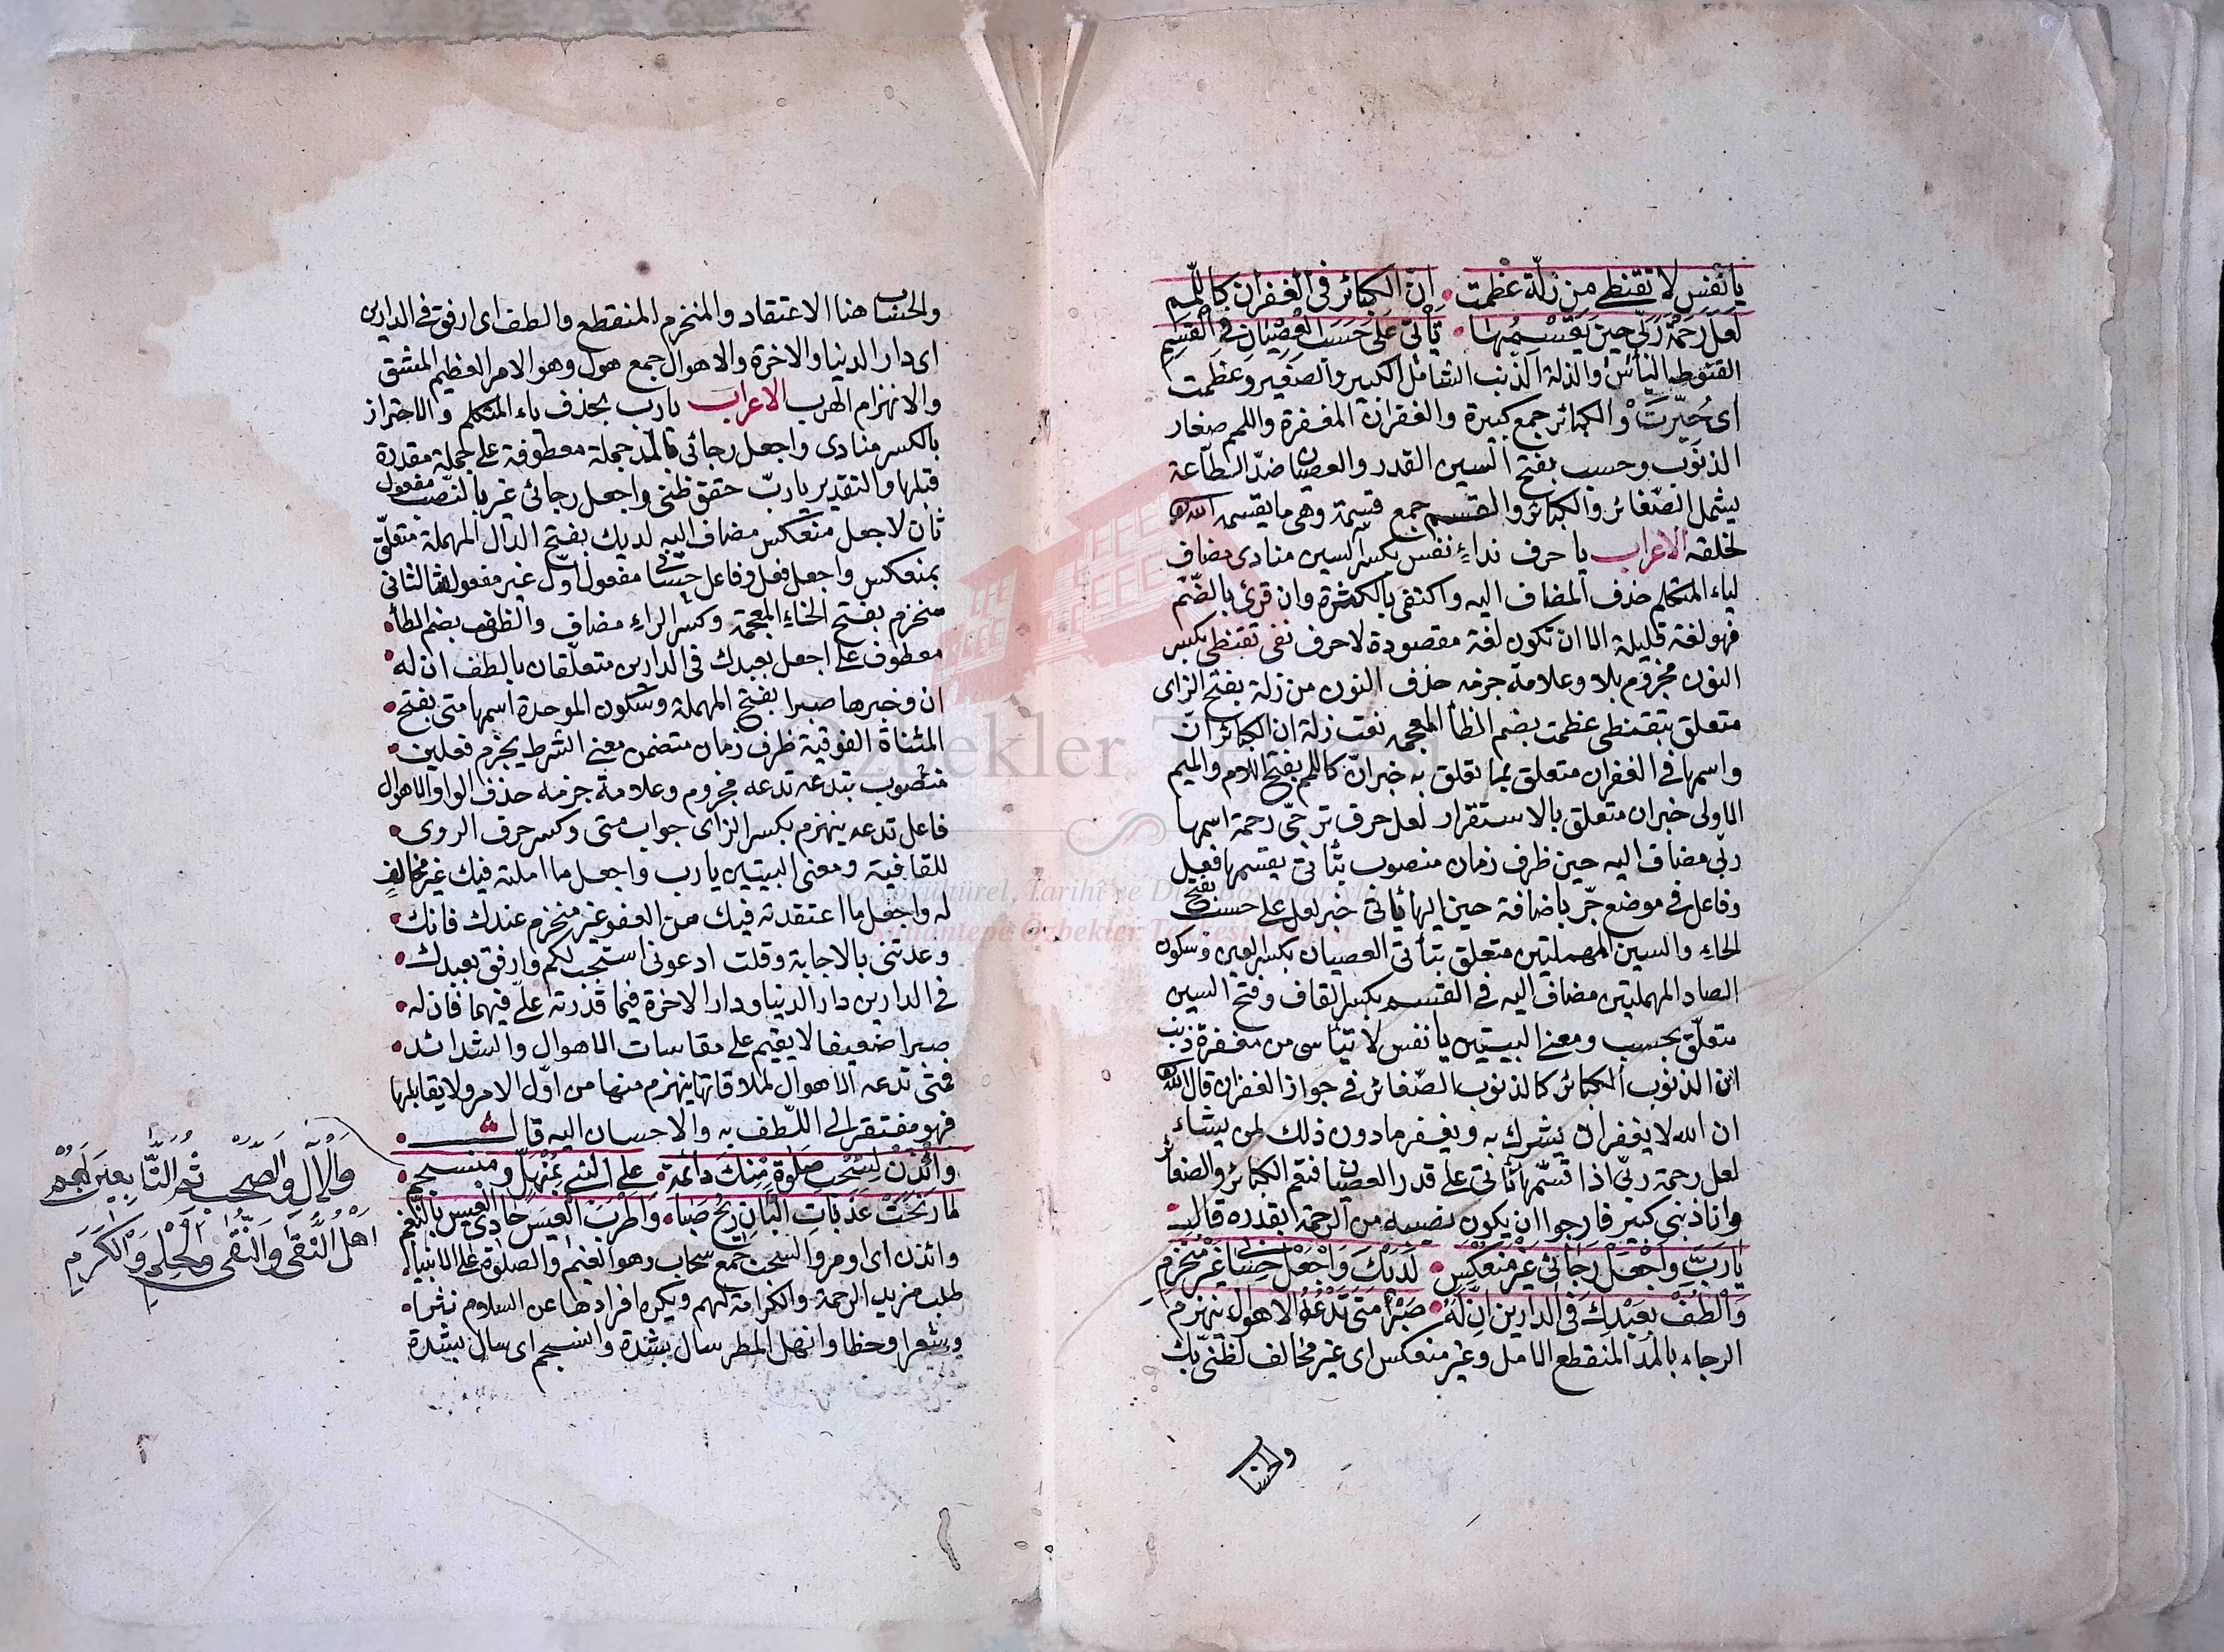 يا نفس لا تقنطى من زلّة عظمت • انّ الكبائر فى الغفران كاللّمم
لعلّ رحمة ربّى حين يقسمها • تأتى على حسب العصيان فى القسم
القنوط اليأس والذلة الذنب الشامل الكبير والصغير وعظمت
اى كبرت والكبائر جمع كبيرة والغفران المغفرة واللمم صغار
الذنوب وحسب بفتح السين القدر والعصيان ضدّ الطاعة
يشمل الصّغائر والكبائر والقسم جمع قسمة وهى ما يقسمه الله
لخلقه الاعراب يا حرف نداء نفس بكسر السين منادى مضاف
لياء المتكلم حذف المضاف اليه واكتفى بالكسرة وان قرئ بالضّم
فهو لغة قليلة الا ان تكون لغة مقصودة لا حرف نفى تقنطى بكسر
النون مجزوم بلا وعلامة جزمه حذف النون من زلة بفتح الزاى
متعلق بتقنطى عظمت بضم الظأ المعجمه نعت زلة ان الكبائر انّ
واسمها فى الغفران متعلق بما تعلق به خبر انّ كاللمم بفتح اللام والميم
الاولى خبر ان متعلق بالاستقرار لعل حرف ترجّى رحمة اسمها
ربى مضاف اليه حين ظرف زمان منصوب بتأتى يقسمها فعل
وفاعل فى موضع جرّ باضافة حين اليها تأتى خبر لعل على حسب بفتح
الحاء والسين المهملتين متعلق بتأتى العصيان بكسر العين وسكون
الصاد المهملتين مضاف اليه فى القسم بكسر القاف وفتح السين
متعلّق بحسب ومعنى البيتين يا نفس لا تيأسى من مغفرة ذنب
ان الذنوب الكبائر كالذنوب الصّغائر فى جواز الغفران قال الله
ان الله لا يغفر ان يشرك به ويغفر ما دون ذلك لمن يشاء
لعل رحمة ربّى اذا قسّمها تأتى على قدر العصيان فتعم الكبائر والصغائر
وانا ذنبى كبير فارجوا ان يكون نصيبه من الرحمة بقدره قال
يا ربّ واجعل رجائى غير منعكس • لديك واجعل حسابى غير منخرم
والطف بعبدك فى الدارين انّ له • صبرا متى تدعه الاهوال ينهزم
الرجاء بالمد المنقطع الامل وغير منعكس اى غير مخالف لظنى بك
والحساب
والحساب هنا الاعتقاد والمنخرم المنقطع والطف اى ارفق فى الدارين
اى دار الدنيا والاخرة والاهوال جمع هول وهو الامر العظيم المشق
والانهزام الهرب الاعراب يا رب بحذف ياء المتكلم والاحتراز
بالكسر منادى واجعل رجائى بالمد جملة معطوفة على جملة مقدرة
قبلها والتقدير يا ربّ حقق ظنى واجعل رجائى غير بالنّصب مفعول
ثان لاجعل منعكس مضاف اليه لديك بفتح الدال المهملة متعلّق
بمنعكس واجعل فعل وفاعل حسابى مفعول اوّل غير مفعوله الثانى
منخرم بفتح الخاء المعجمة وكسر الراء مضاف والطف بضم الطأ •
معطوف على اجعل بعبدك فى الدارين متعلّقان بالطف ان له •
ان وخبرها صبرا بفتح المهملة وسكون الموحدة اسمها متى بفتح •
المثناة الفوقية ظرف زمان متضمن معنى الشرط يجزم فعلين •
منصوب بتدعه تدعه مجزوم وعلامة جزمه حذف الواو الاهوال
فاعل تدعه ينهزم بكسر الزاى جواب متى وكسر حرف الروى •
للقافية ومعنى البيتين يا رب واجعل ما املته فيك غير مخالف
له واجعل ما اعتقدته فيك من العفو غير منخرم عندك فانك •
وعدتنى بالاجابة وقلت ادعونى استجب لكم وارفق بعبدك •
فى الدارين دار الدنيا ودار الاخرة فيما قدرته علىّ فيهما فان له •
صبرا ضعيفا لا يقيم على مقاسات الاهوال والشدائد •
فمتى تدعه الاهوال لملاقاتها ينهزم منها من اوّل الامر ولا يقابلها
فهو مفتقر الى اللّطف به والاحسان اليه قال •
وائذن لسحب صلوة منك دائمة • على النبى بمنهلّ ومنسجم •
ما رنّحت عذبات البان ريح صبا • واطرب العيس حادى العيس بالنّغم
وائذن اى اومر والسحب جمع سحاب وهو الغيم والصلوة على الانبيأ •
طلب مزيد الرحمة والكرامة لهم ويكره افرادها عن السلام نثرا •
وشعرا وخطا وانهل المطر سال بشدة وانسجم اى سال بشدة
والآل والصّحب ثمّ التّابعين لهم
اهل التّقى والنّقى والحلم والكرم
Özbekler Tekkesi
Sosyokültürel, Tarihî ve Dinî Boyutlarıyla
Sultantepe Özbekler Tekkesi Projesi